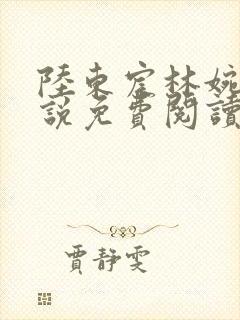 陸東宦林婉
說免費閱讀
賈靜雯